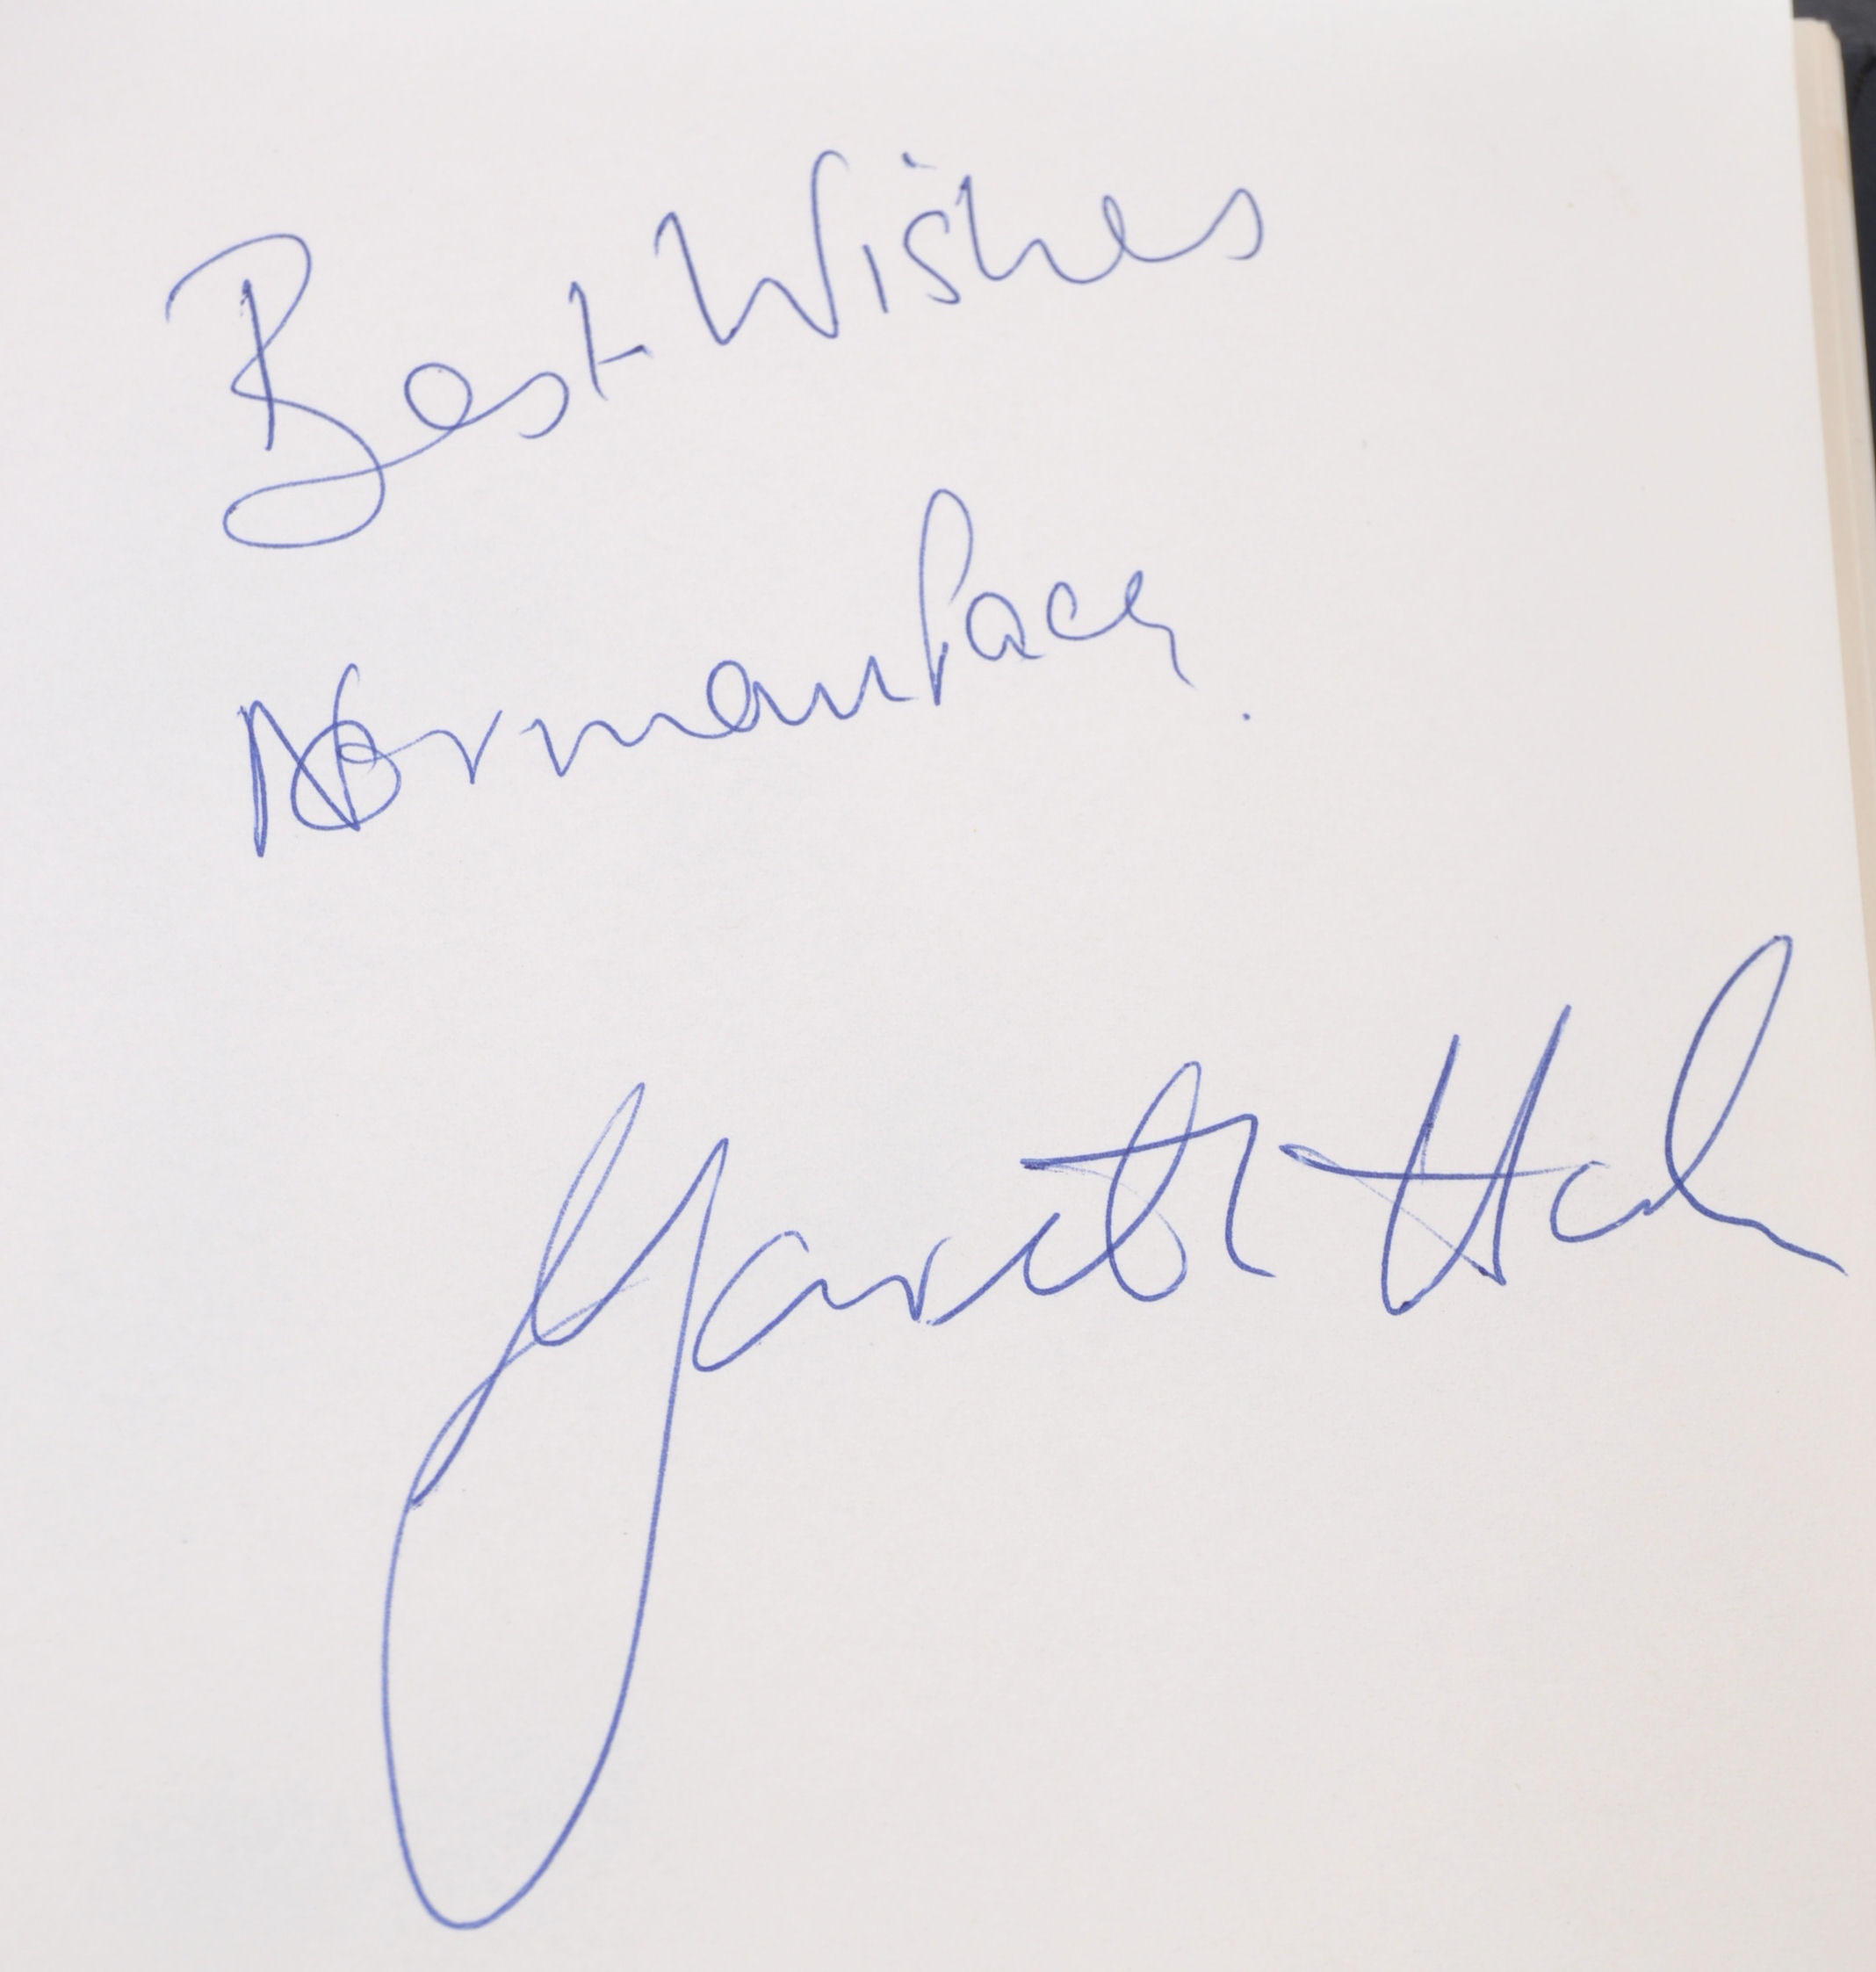 Best Wishes
Norman Pace.
Gareth Hale